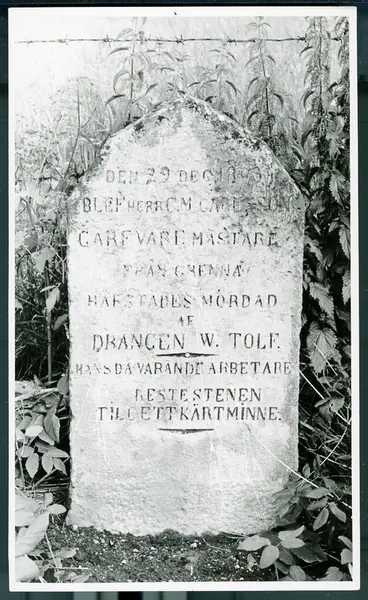 DEN 29 DEC
BLEF HERR C.M. CARLSSON
GARFVARE MÄSTARE
FRÅN GRENNA
HÄRSTÄDES MÖRDAD
AF
DRÄNGEN W. TOLF.
HANS DÅ VARANDE ARBETARE
RESTE STENEN
TILL ETT KÄRT MINNE.